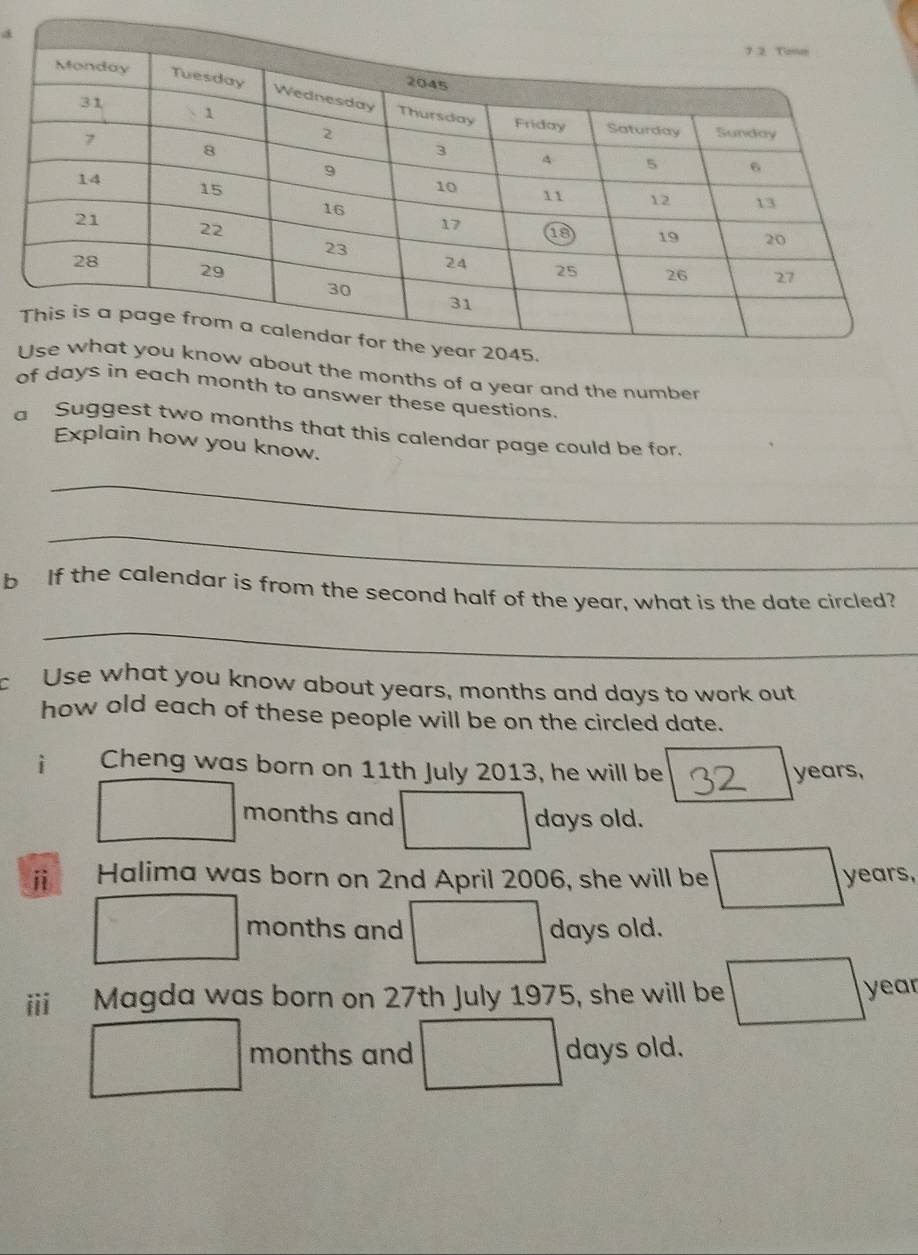 7.2 Time
2045
Monday Tuesday Wednesday Thursday Friday Saturday Sunday
31 1 2 3 4 5 6
7 8 9 10 11 12 13
14 15 16 17 18 19 20
21 22 23 24 25 26 27
28 29 30 31
This is a page from a calendar for the year 2045.
Use what you know about the months of a year and the number
of days in each month to answer these questions.
a Suggest two months that this calendar page could be for.
Explain how you know.
b If the calendar is from the second half of the year, what is the date circled?
c Use what you know about years, months and days to work out
how old each of these people will be on the circled date.
i Cheng was born on 11th July 2013, he will be 32 years,
months and days old.
ii Halima was born on 2nd April 2006, she will be years,
months and days old.
iii Magda was born on 27th July 1975, she will be year
months and days old.